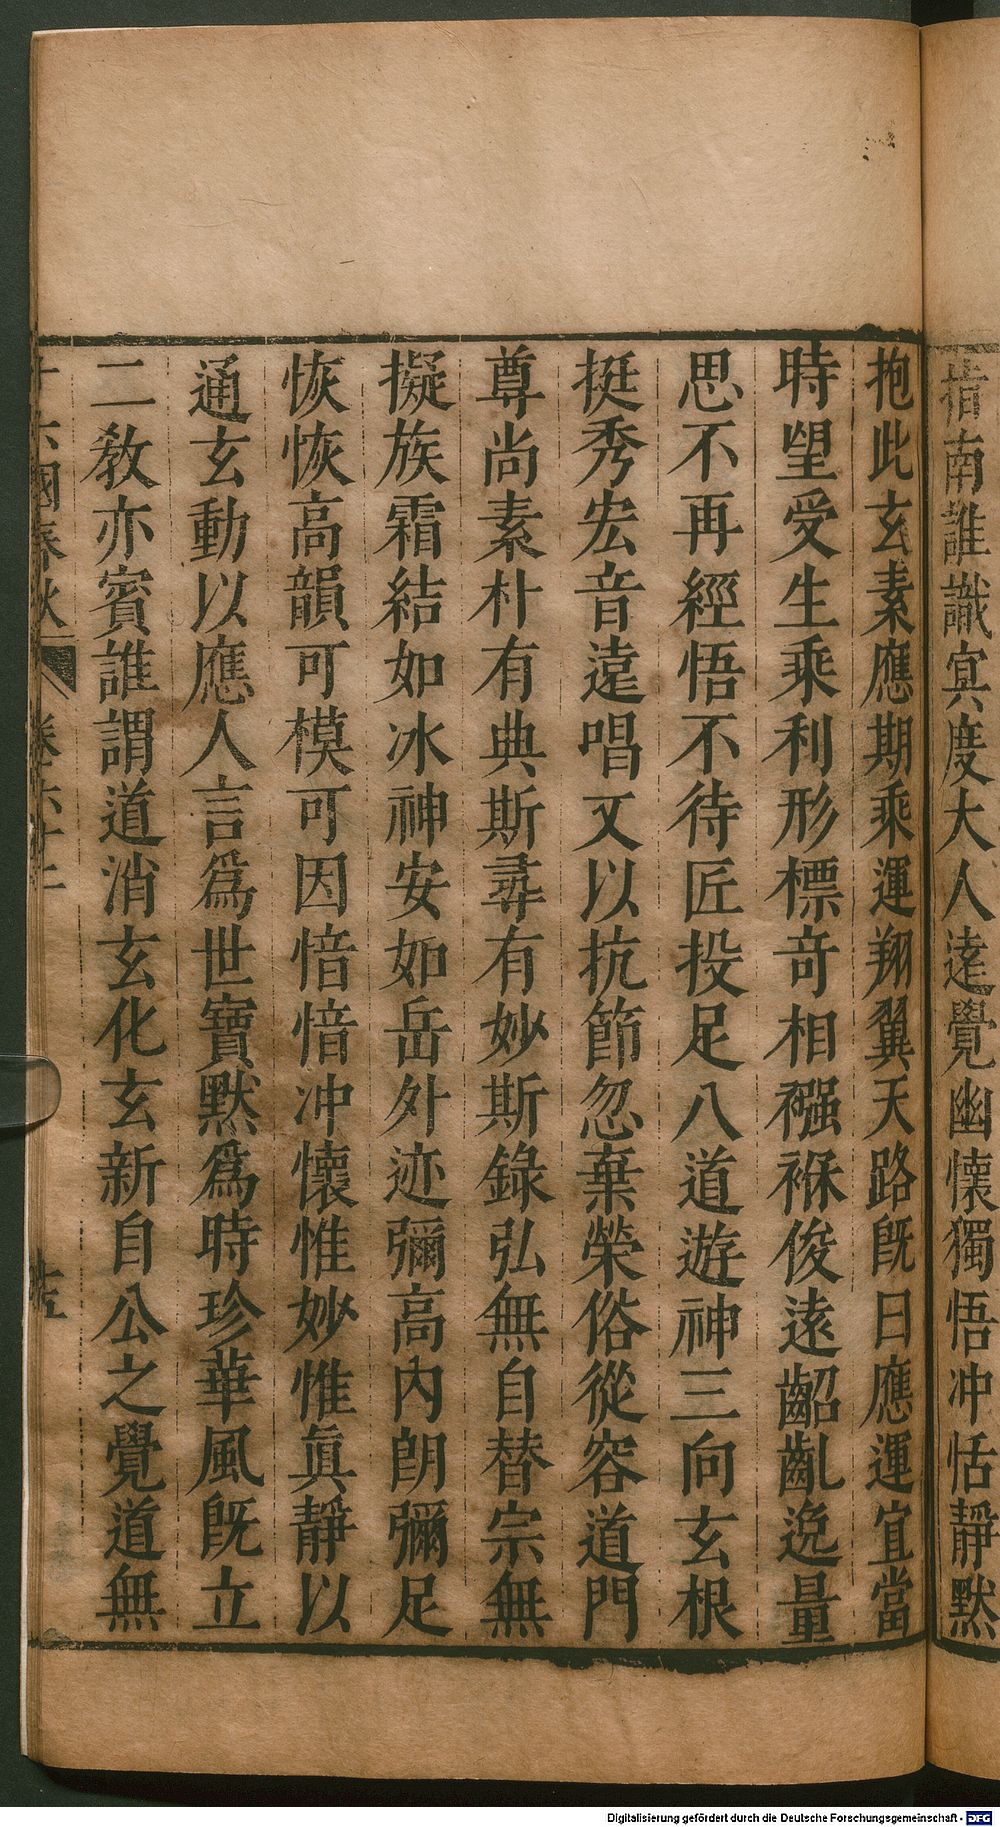 指南誰識冥度大人遠覺幽懷獨悟冲恬靜默
抱此玄素應期乘運翔翼天路旣曰應運宜當
時望受生乘利形標竒相襁褓俊遠齠齓逸量
思不再經悟不待匠投足八道遊神三向玄根
挺秀宏音遠唱又以抗節忽棄榮俗從容道門
尊尚素朴有典斯尋有妙斯錄弘無自替宗無
擬族霜結如冰神安如岳外迹彌高內朗彌足
恢恢高韻可模可因愔愔冲懷惟妙惟眞靜以
通玄動以應人言爲世寶默爲時珍華風旣立
二敎亦賓誰謂道消玄化玄新自公之覺道無
十六國春秋 卷六十二
Digitalisierung gefördert durch die Deutsche Forschungsgemeinschaft - DFG